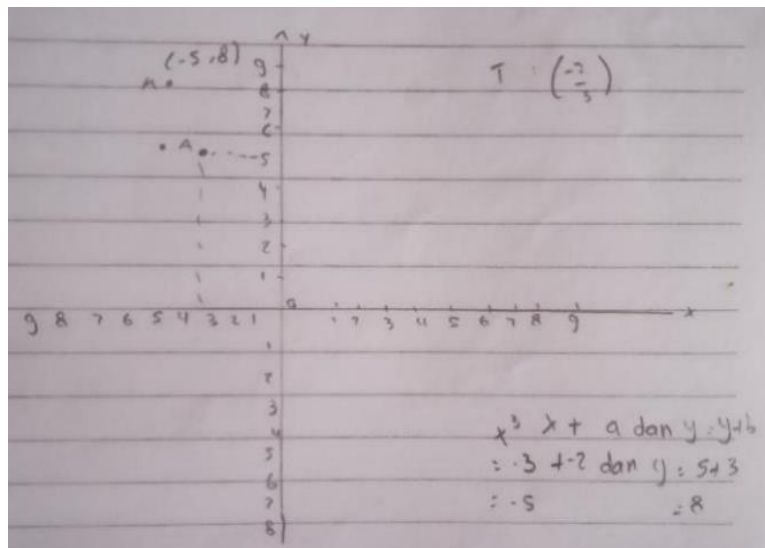 y
(-5,8)
9
A .
8
7
6
. A
5
4
3
2
1
T : (-2
3)
9 8 7 6 5 4 3 2 1 0 1 2 3 4 5 6 7 8 9 x
1
2
3
4
5
6
7
8
x + a dan y = y+b
= -3 + -2 dan y = 5+3
= -5 = 8